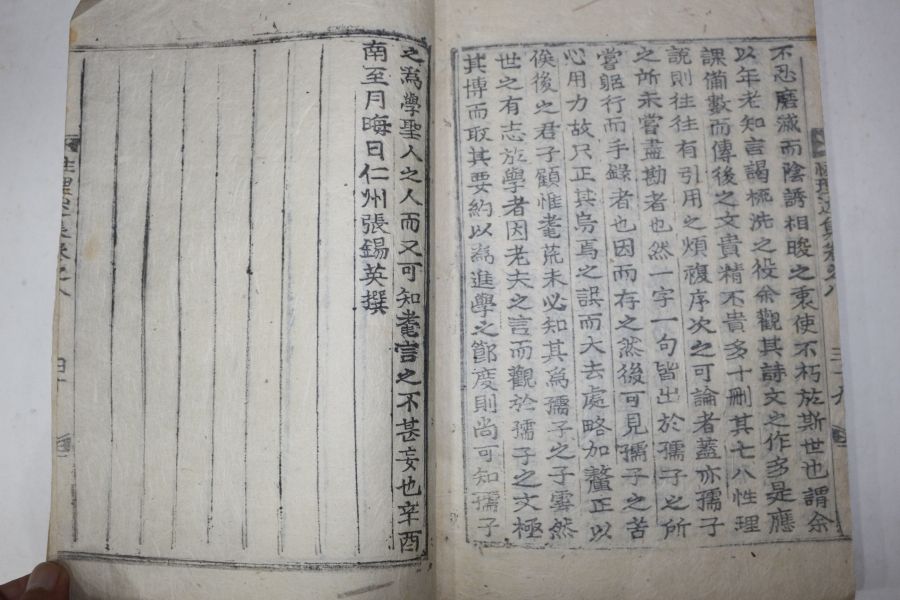 不忍磨滅而陰誘相晙之秉使不朽於斯世也謂余
以年老知言謁梳洗之役余觀其詩文之作多是應
課備數而傳後之文貴精不貴多十刪其七八性理
說則往往有引用之煩複序次之可論者蓋亦孺子
之所未嘗盡勘者也然一字一句皆出於孺子之所
嘗躬行而手錄者也因而存之然後可見孺子之苦
心用力故只正其烏焉之誤而大去處略加釐正以
俟後之君子顧惟耄荒未必知其爲孺子之子雲然
世之有志於學者因老夫之言而觀於孺子之文極
其博而取其要約以爲進學之節度則尚可知孺子
之爲學聖人之人而又可知耄言之不甚妄也辛酉
南至月晦日仁州張錫英撰
性理 卷之八
三十九
卷之八
四十